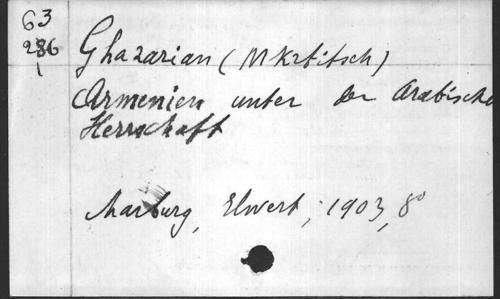 63
286
1
Ghazarian (Mkrtitsch)
Armenien unter der Arabische
Herrschaft
Marburg, Elwert, 1903, 8°